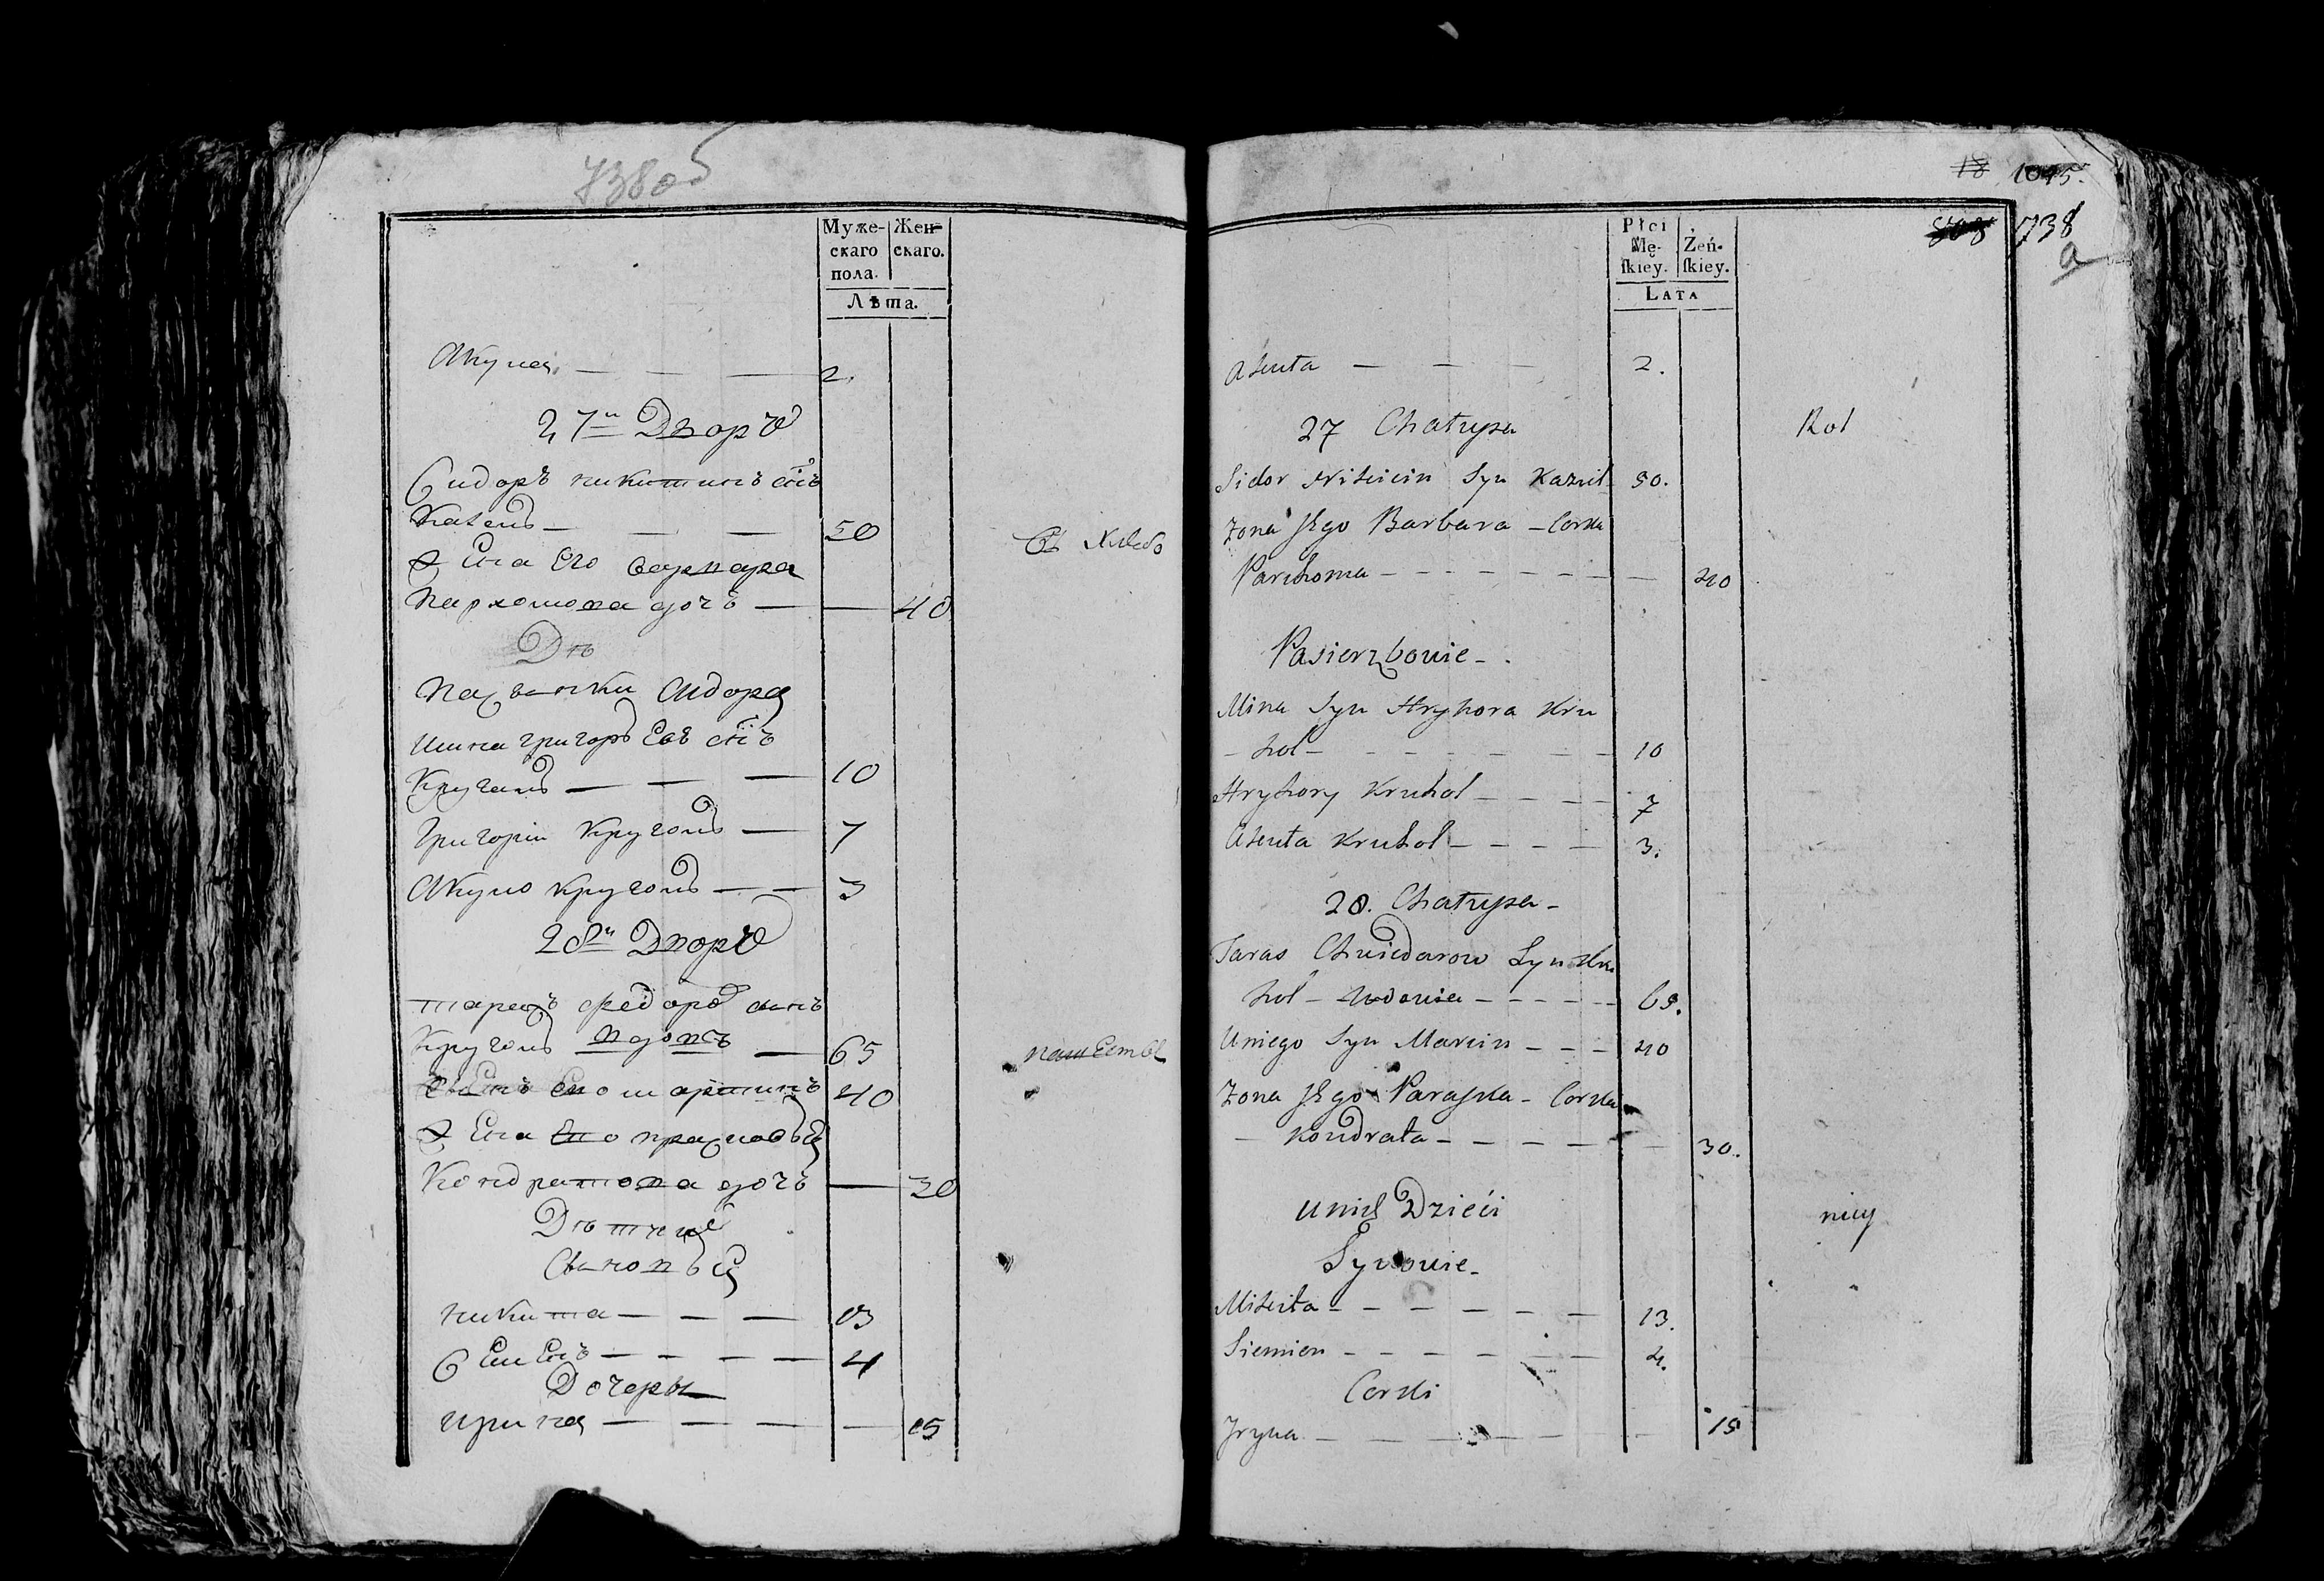 738 об
Муже-
скаго
пола.
Жен-
скаго.
Лѣта.
Акула — — — 2.
27й Дворъ
Сидоръ никитинъ снъ
— — 50
Жена Его варвара
Пархомова дочъ — — 40
Съ Хлебо
пасынки Сидора
мина григорьевъ снъ
Круголь — — — 10
Григорiи Круголь — 7
Акуло круголь — — 3
28й Дворъ
тарасъ федоровъ сынъ
Круголь вдовъ — 65
пашества
сынъ Его мартинъ 40
Жена Его прасковья
Кондратова дочъ — 30
Сыновья
никита — — — 13
Семенъ — — — — 4
Дочеры
ирина — — — — 15
18 1045.
808 738
а
Płci
Mę-
ſkiey.
Żeń-
ſkiey.
LATA
Akuła — — — 2.
27 Chatupa
Rol
Sidor Nikicin Syn 50.
Zona Jego Barbara – Corka
Parchoma – – – – – – – 40
Pasierzbowie – .
Mina Syn Hryhora Kru
– hol – – – – – – – 10
Hryhory Kruhol – – – – 7
Akuła Kruhol – – – – 3.
28. Chatupa –
Taras Chwiedarow Syn Kru
hol – Wdowiec – – – – – 65.
Uniego Syn Marcin – – – 40
Zona Jego Paraska – Corka
– Kondrata – – – – – 30.
Unich Dzieći
niey
Synowie –
Mikita – – – – – – 13.
Siemien – – – – – – 4.
Corki
Jryna – – – – – – – 15